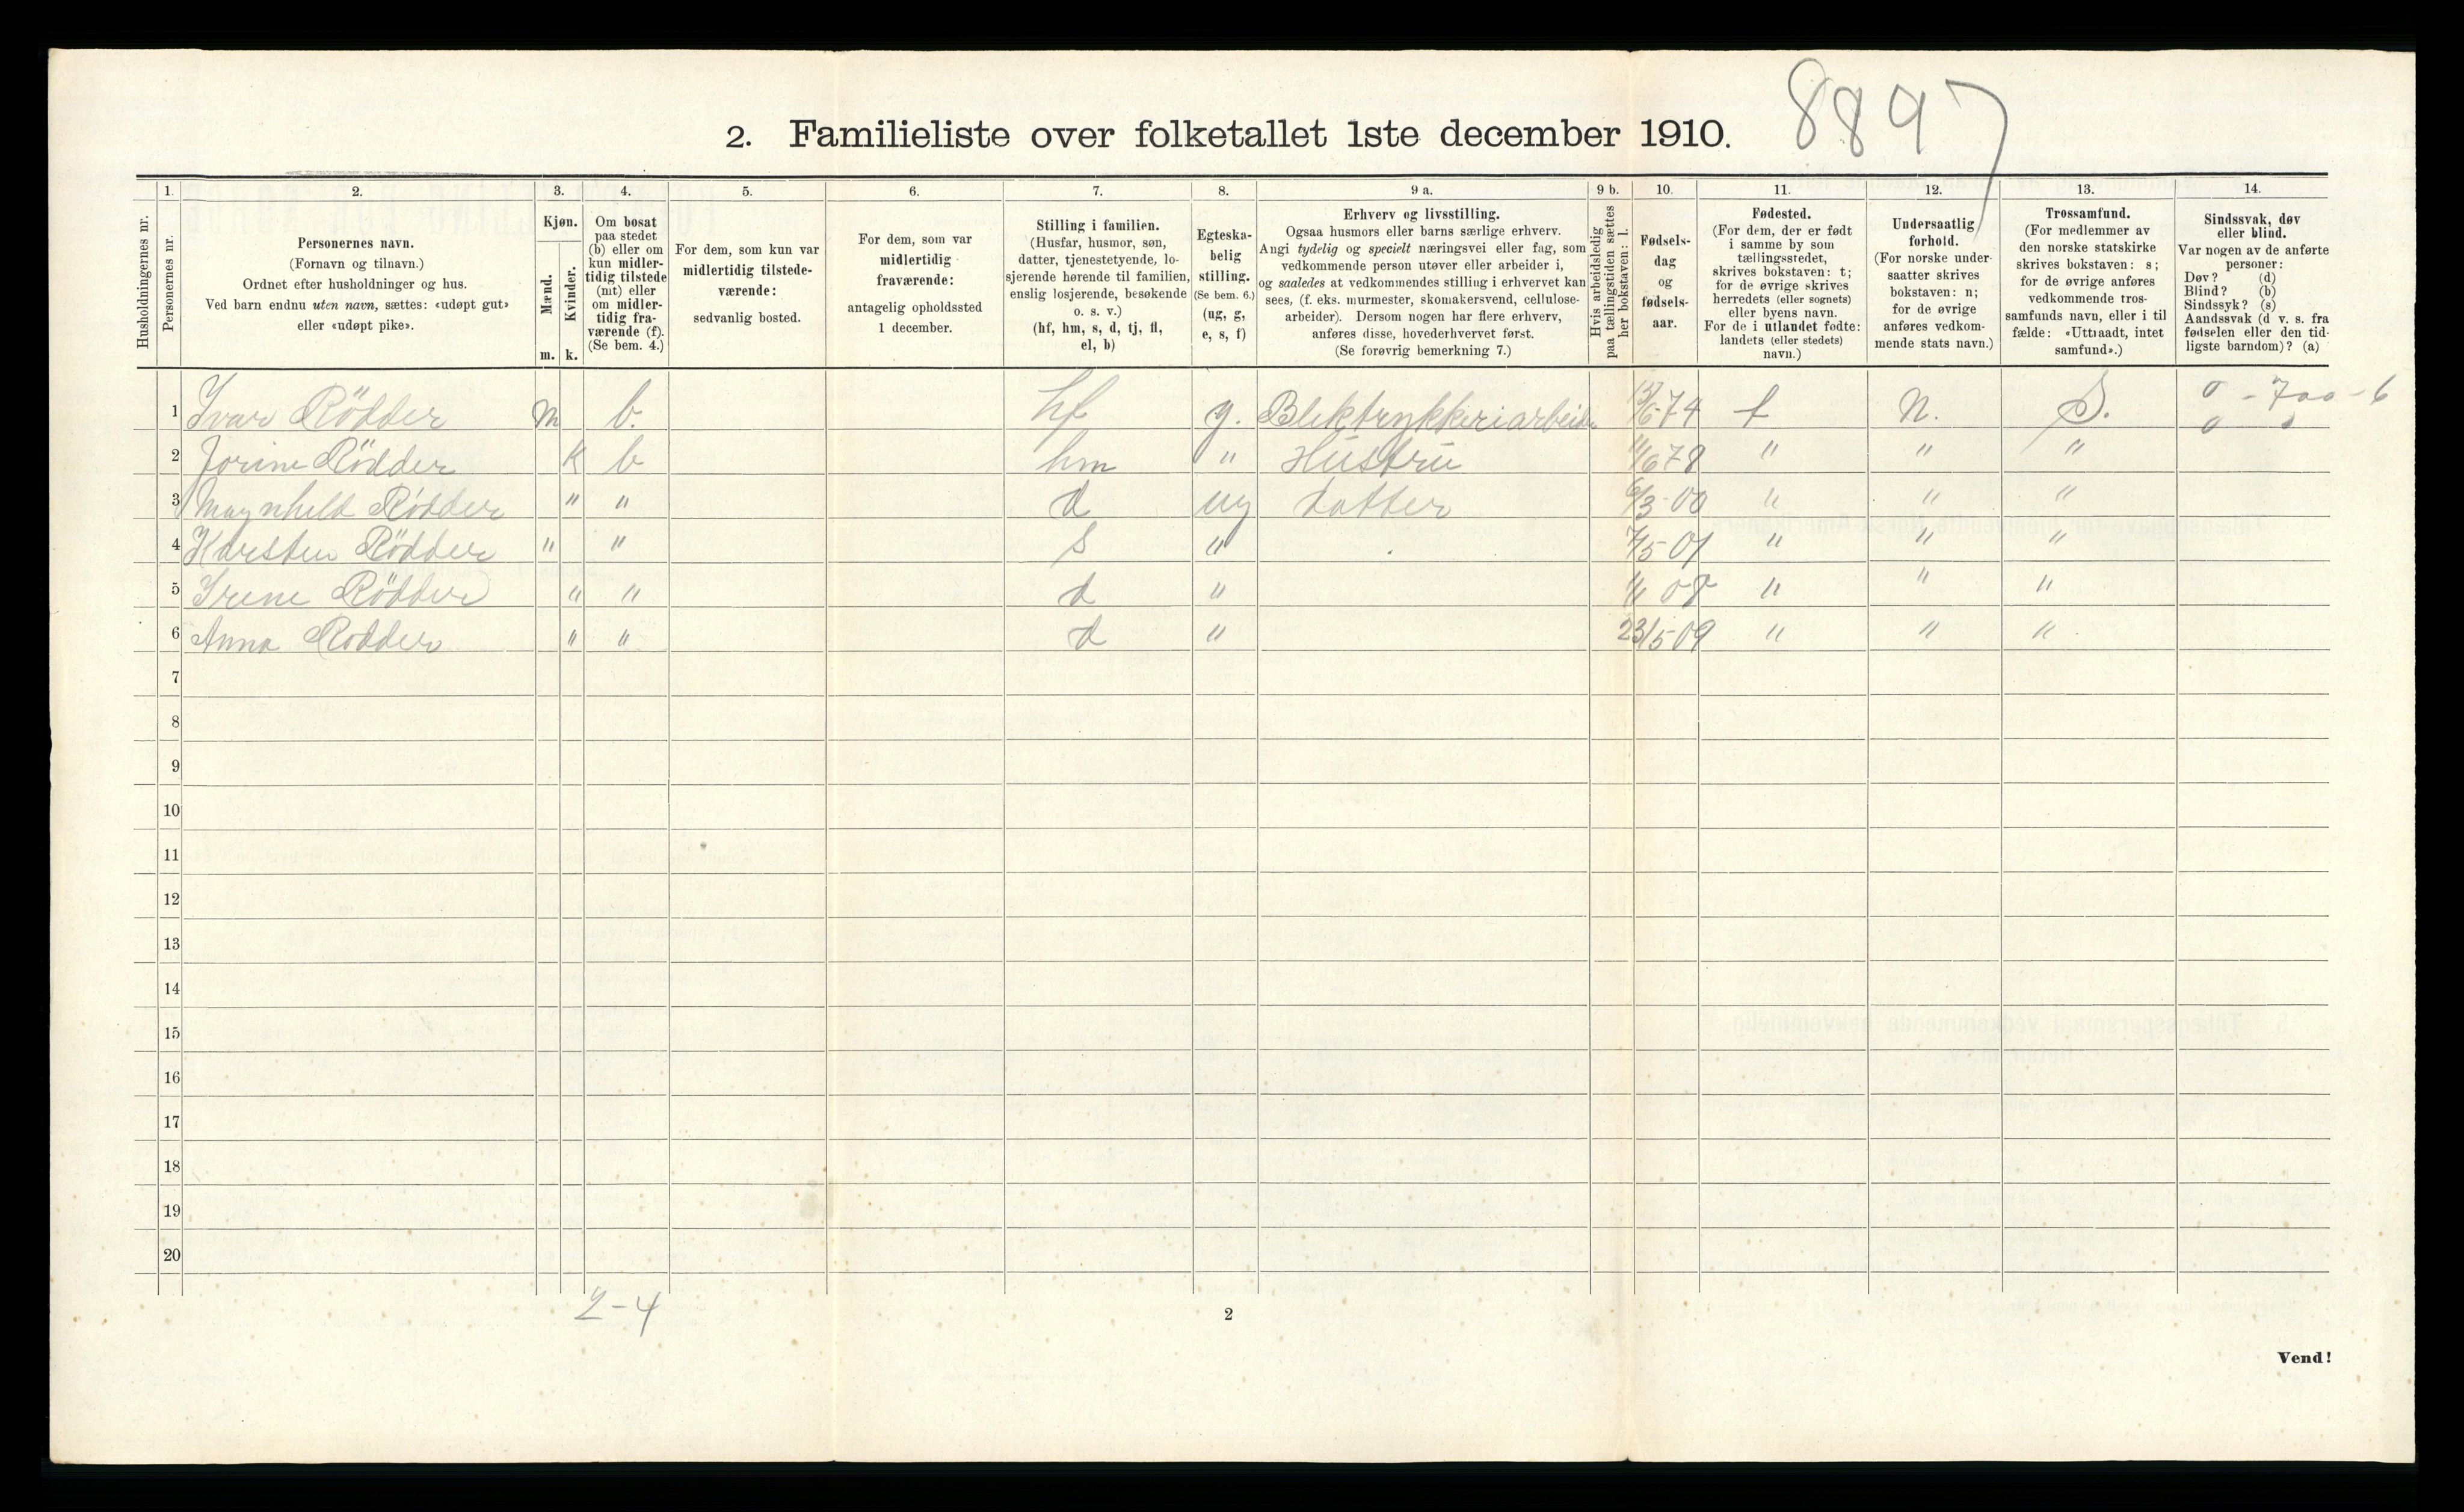 8897
2. Familieliste over folketallet 1ste december 1910.
Husholdningernes nr.
1.
Personernes nr.
2.
Personernes navn.
(Fornavn og tilnavn.)
Ordnet efter husholdninger og hus.
Ved barn endnu uten navn, sættes: «udøpt gut»
eller «udøpt pike».
3.
Kjøn.
Mænd.
Kvinder.
m. k.
4.
Om bosat
paa stedet
(b) eller om
kun midler-
tidig tilstede
(mt) eller
om midler-
tidig fra-
værende (f).
(Se bem. 4.)
5.
For dem, som kun var
midlertidig tilstede-
værende:
sedvanlig bosted.
6.
For dem, som var
midlertidig
fraværende:
antagelig opholdssted
1 december.
7.
Stilling i familien.
(Husfar, husmor, søn,
datter, tjenestetyende, lo-
sjerende hørende til familien,
enslig losjerende, besøkende
o. s. v.)
(hf, hm, s, d, tj, fl,
el, b)
8.
Egteska-
belig
stilling.
(Se bem. 6.)
(ug, g,
e, s, f)
9 a.
Erhverv og livsstilling.
Ogsaa husmors eller barns særlige erhverv.
Angi tydelig og specielt næringsvei eller fag, som
vedkommende person utøver eller arbeider i,
og saaledes at vedkommendes stilling i erhvervet kan
sees, (f. eks. murmester, skomakersvend, cellulose-
arbeider). Dersom nogen har flere erhverv,
anføres disse, hovederhvervet først.
(Se forøvrig bemerkning 7.)
9 b.
Hvis arbeidsledig
paa tællingstiden sættes
her bokstaven: l.
10.
Fødsels-
dag
og
fødsels-
aar.
11.
Fødested.
(For dem, der er født
i samme by som
tællingsstedet,
skrives bokstaven: t;
for de øvrige skrives
herredets (eller sognets)
eller byens navn.
For de i utlandet fødte:
landets (eller stedets)
navn.)
12.
Undersaatlig
forhold.
(For norske under-
saatter skrives
bokstaven: n;
for de øvrige
anføres vedkom-
mende stats navn.)
13.
Trossamfund.
(For medlemmer av
den norske statskirke
skrives bokstaven: s;
for de øvrige anføres
vedkommende tros-
samfunds navn, eller i til
fælde: «Uttraadt, intet
samfund».)
14.
Sindssvak, døv
eller blind.
Var nogen av de anførte
personer:
Døv? (d)
Blind? (b)
Sindssyk? (s)
Aandssvak (d v. s. fra
fødselen eller den tid-
ligste barndom)? (a)
1 Ivar Rödder m b. hf g. Blektrykkeriarbeider 6-74 t n. S. 0 - 700 - 6
2 Jorine Rödder k b hm " Hustru 11/6 78 " " "
3 Magnhild Rödder " " d ug datter 6/3-00 " " "
4 Karsten Rödder " " s " 7/5-01 " " "
5 Irene Rödder " " d " 08 " " "
6 Anna Rodder " " d " 23/5-09 " " "
7
8
9
10
11
12
13
14
15
16
17
18
19
20
2-4
2
Vend!